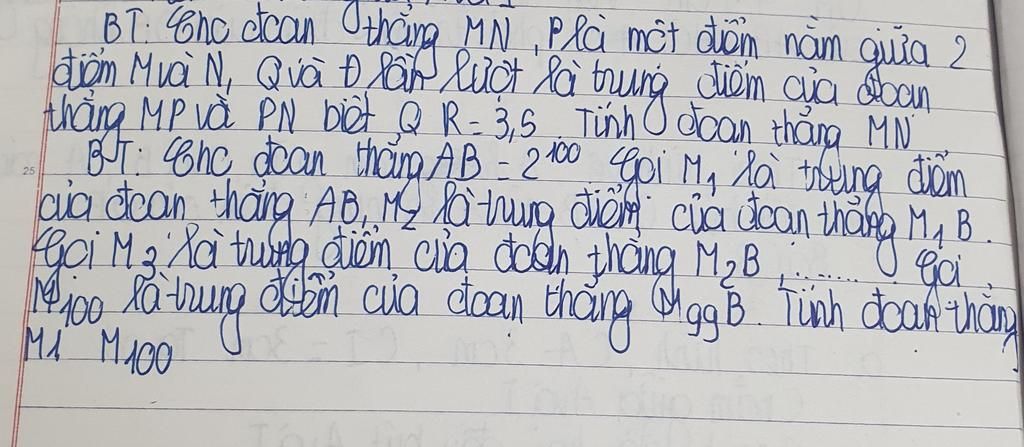 BT. Cho đoạn thẳng MN, P là một điểm nằm giữa 2
điểm M và N, Q và Đ lần lượt là trung điểm của đoạn
thẳng MP và PN biết Q R = 3,5. Tính đoạn thẳng MN
BT. Cho đoạn thẳng AB = 2^100 Gọi M1 là trung điểm
của đoạn thẳng AB, M2 là trung điểm của đoạn thẳng M1 B.
Gọi M3 là trung điểm của đoạn thẳng M2B, ........ Gọi
M100 là trung điểm của đoạn thẳng M99B. Tính đoạn thẳng
M1 M100
25